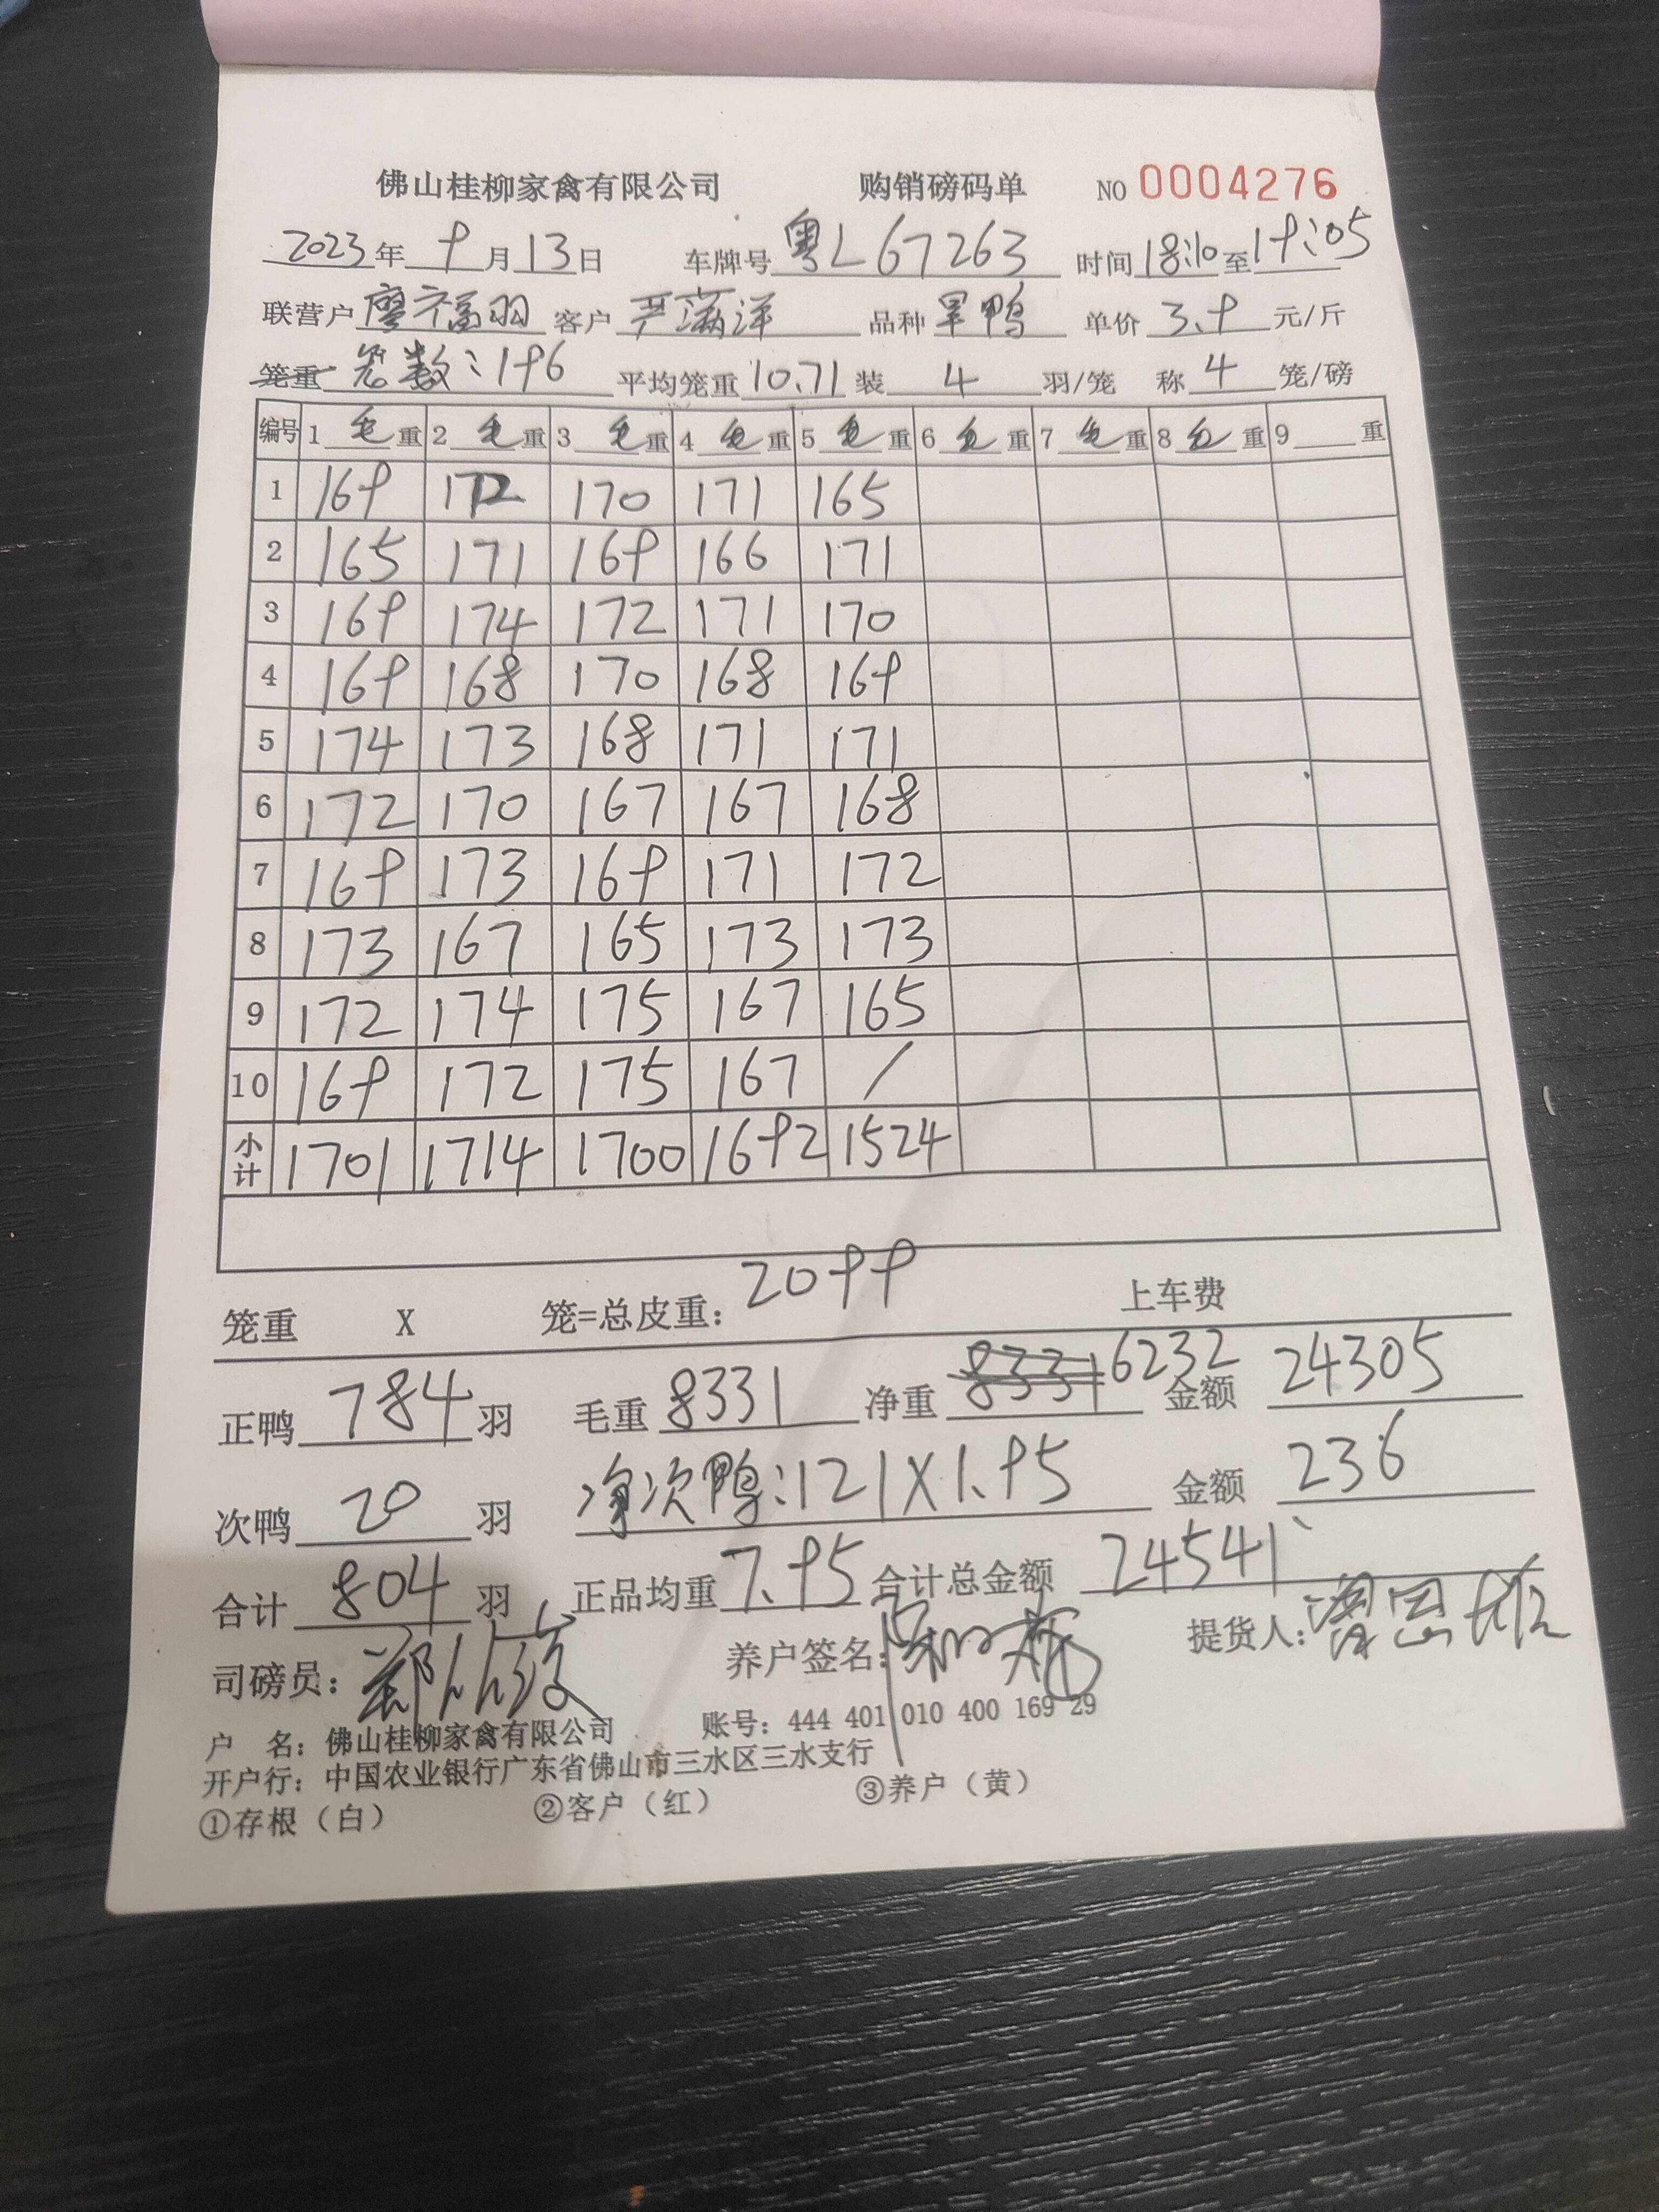 佛山桂柳家禽有限公司 购销磅码单 NO 0004276
2023年 9月13日 车牌号 粤L67263 时间18:10至19:05
联营户 廖福羽 客户 严满洋 品种 旱鸭 单价 3.9 元/斤
笼重 笼数:196 平均笼重10.71装 4 羽/笼 称 4 笼/磅
编号 1 毛 重 2 毛 重 3 毛 重 4 毛 重 5 毛 重 6 毛 重 7 毛 重 8 毛 重 9 重
1 169 172 170 171 165
2 165 171 169 166 171
3 169 174 172 171 170
4 169 168 170 168 169
5 174 173 168 171 171
6 172 170 167 167 168
7 169 173 169 171 172
8 173 167 165 173 173
9 172 174 175 167 165
10 169 172 175 167 /
小计 1701 1714 1700 1692 1524
笼重 X 笼=总皮重: 2099 上车费
正鸭 784 羽 毛重 8331 净重 8331 6232 金额 24305
次鸭 20 羽 净次鸭:121X1.95 金额 236
合计 804 羽 正品均重 7.95 合计总金额 24541
司磅员: 郑 养户签名: 提货人:
户 名: 佛山桂柳家禽有限公司 账号: 444 401 010 400 169 29
开户行: 中国农业银行广东省佛山市三水区三水支行
①存根（白） ②客户（红） ③养户（黄）